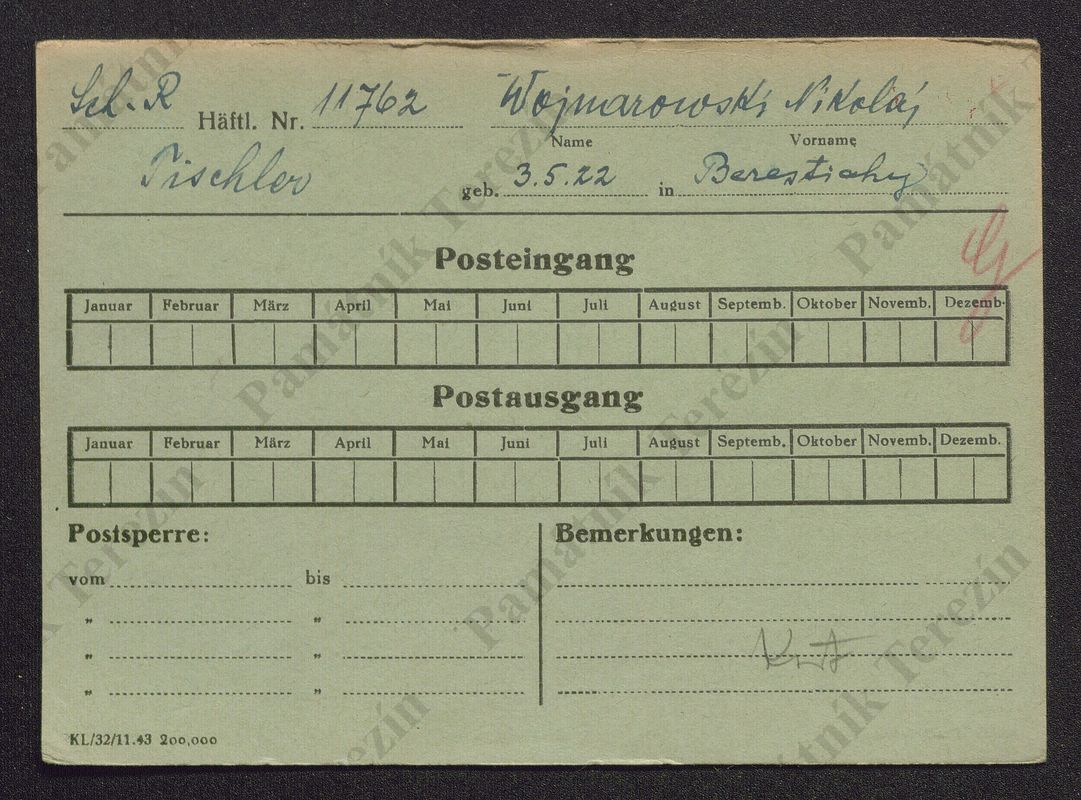 Sch. R Häftl. Nr. 11762 Wojnarowski Nikolaj
Name Vorname
Tischler geb. 3.5.22 in Berestichy
Posteingang
Januar Februar März April Mai Juni Juli August Septemb. Oktober Novemb. Dezemb.
Postausgang
Januar Februar März April Mai Juni Juli August Septemb. Oktober Novemb. Dezemb.
Postsperre: Bemerkungen:
vom bis
„ „
„ „
„ „
KL/32/11.43 200,000
Památník Terezín